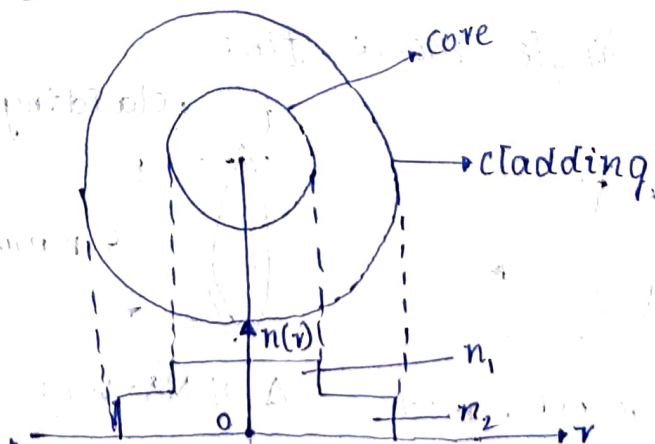 core
cladding
n(r)
n₁
n₂
0
r